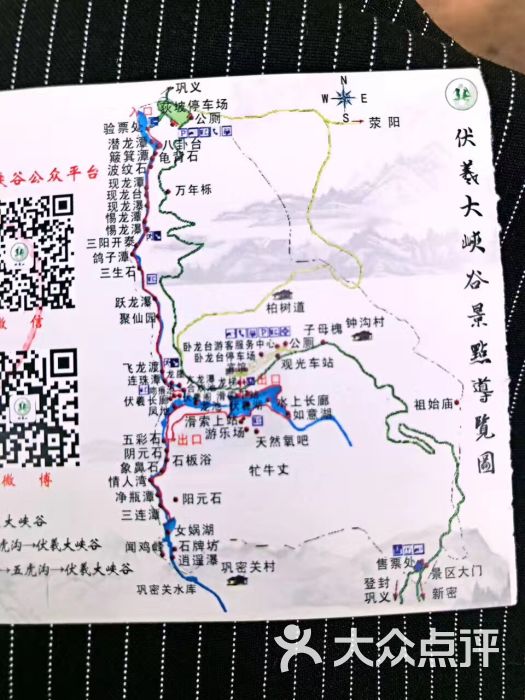 伏羲大峡谷景點導覽圖
N
W
E
S
巩义
荥阳
入口
停车场
公厕
验票处
八卦台
潜龙潭
龟背石
簸箕潭
波纹石
万年栎
现龙潭
现龙台
现龙瀑
惕龙潭
惕龙瀑
三阳开泰
鸽子潭
三生石
跃龙瀑
聚仙园
柏树道
钟沟村
子母槐
公厕
卧龙台游客服务中心
卧龙台停车场
宾馆
观光车站
飞龙渡
连珠潭
出口
伏羲长廊
水上长廊
如意湖
滑索上站
游乐场
天然氧吧
祖始庙
五彩石
出口
阴元石
石板浴
象鼻石
牤牛丈
情人湾
净瓶潭
阳元石
三连潭
女娲湖
闻鸡峰
石牌坊
逍遥瀑
巩密关村
巩密关水库
售票处
景区大门
登封
巩义
新密
峡谷公众平台
微 信
微 博
大峡谷
虎沟→伏羲大峡谷
→五虎沟→伏羲大峡谷
大众点评